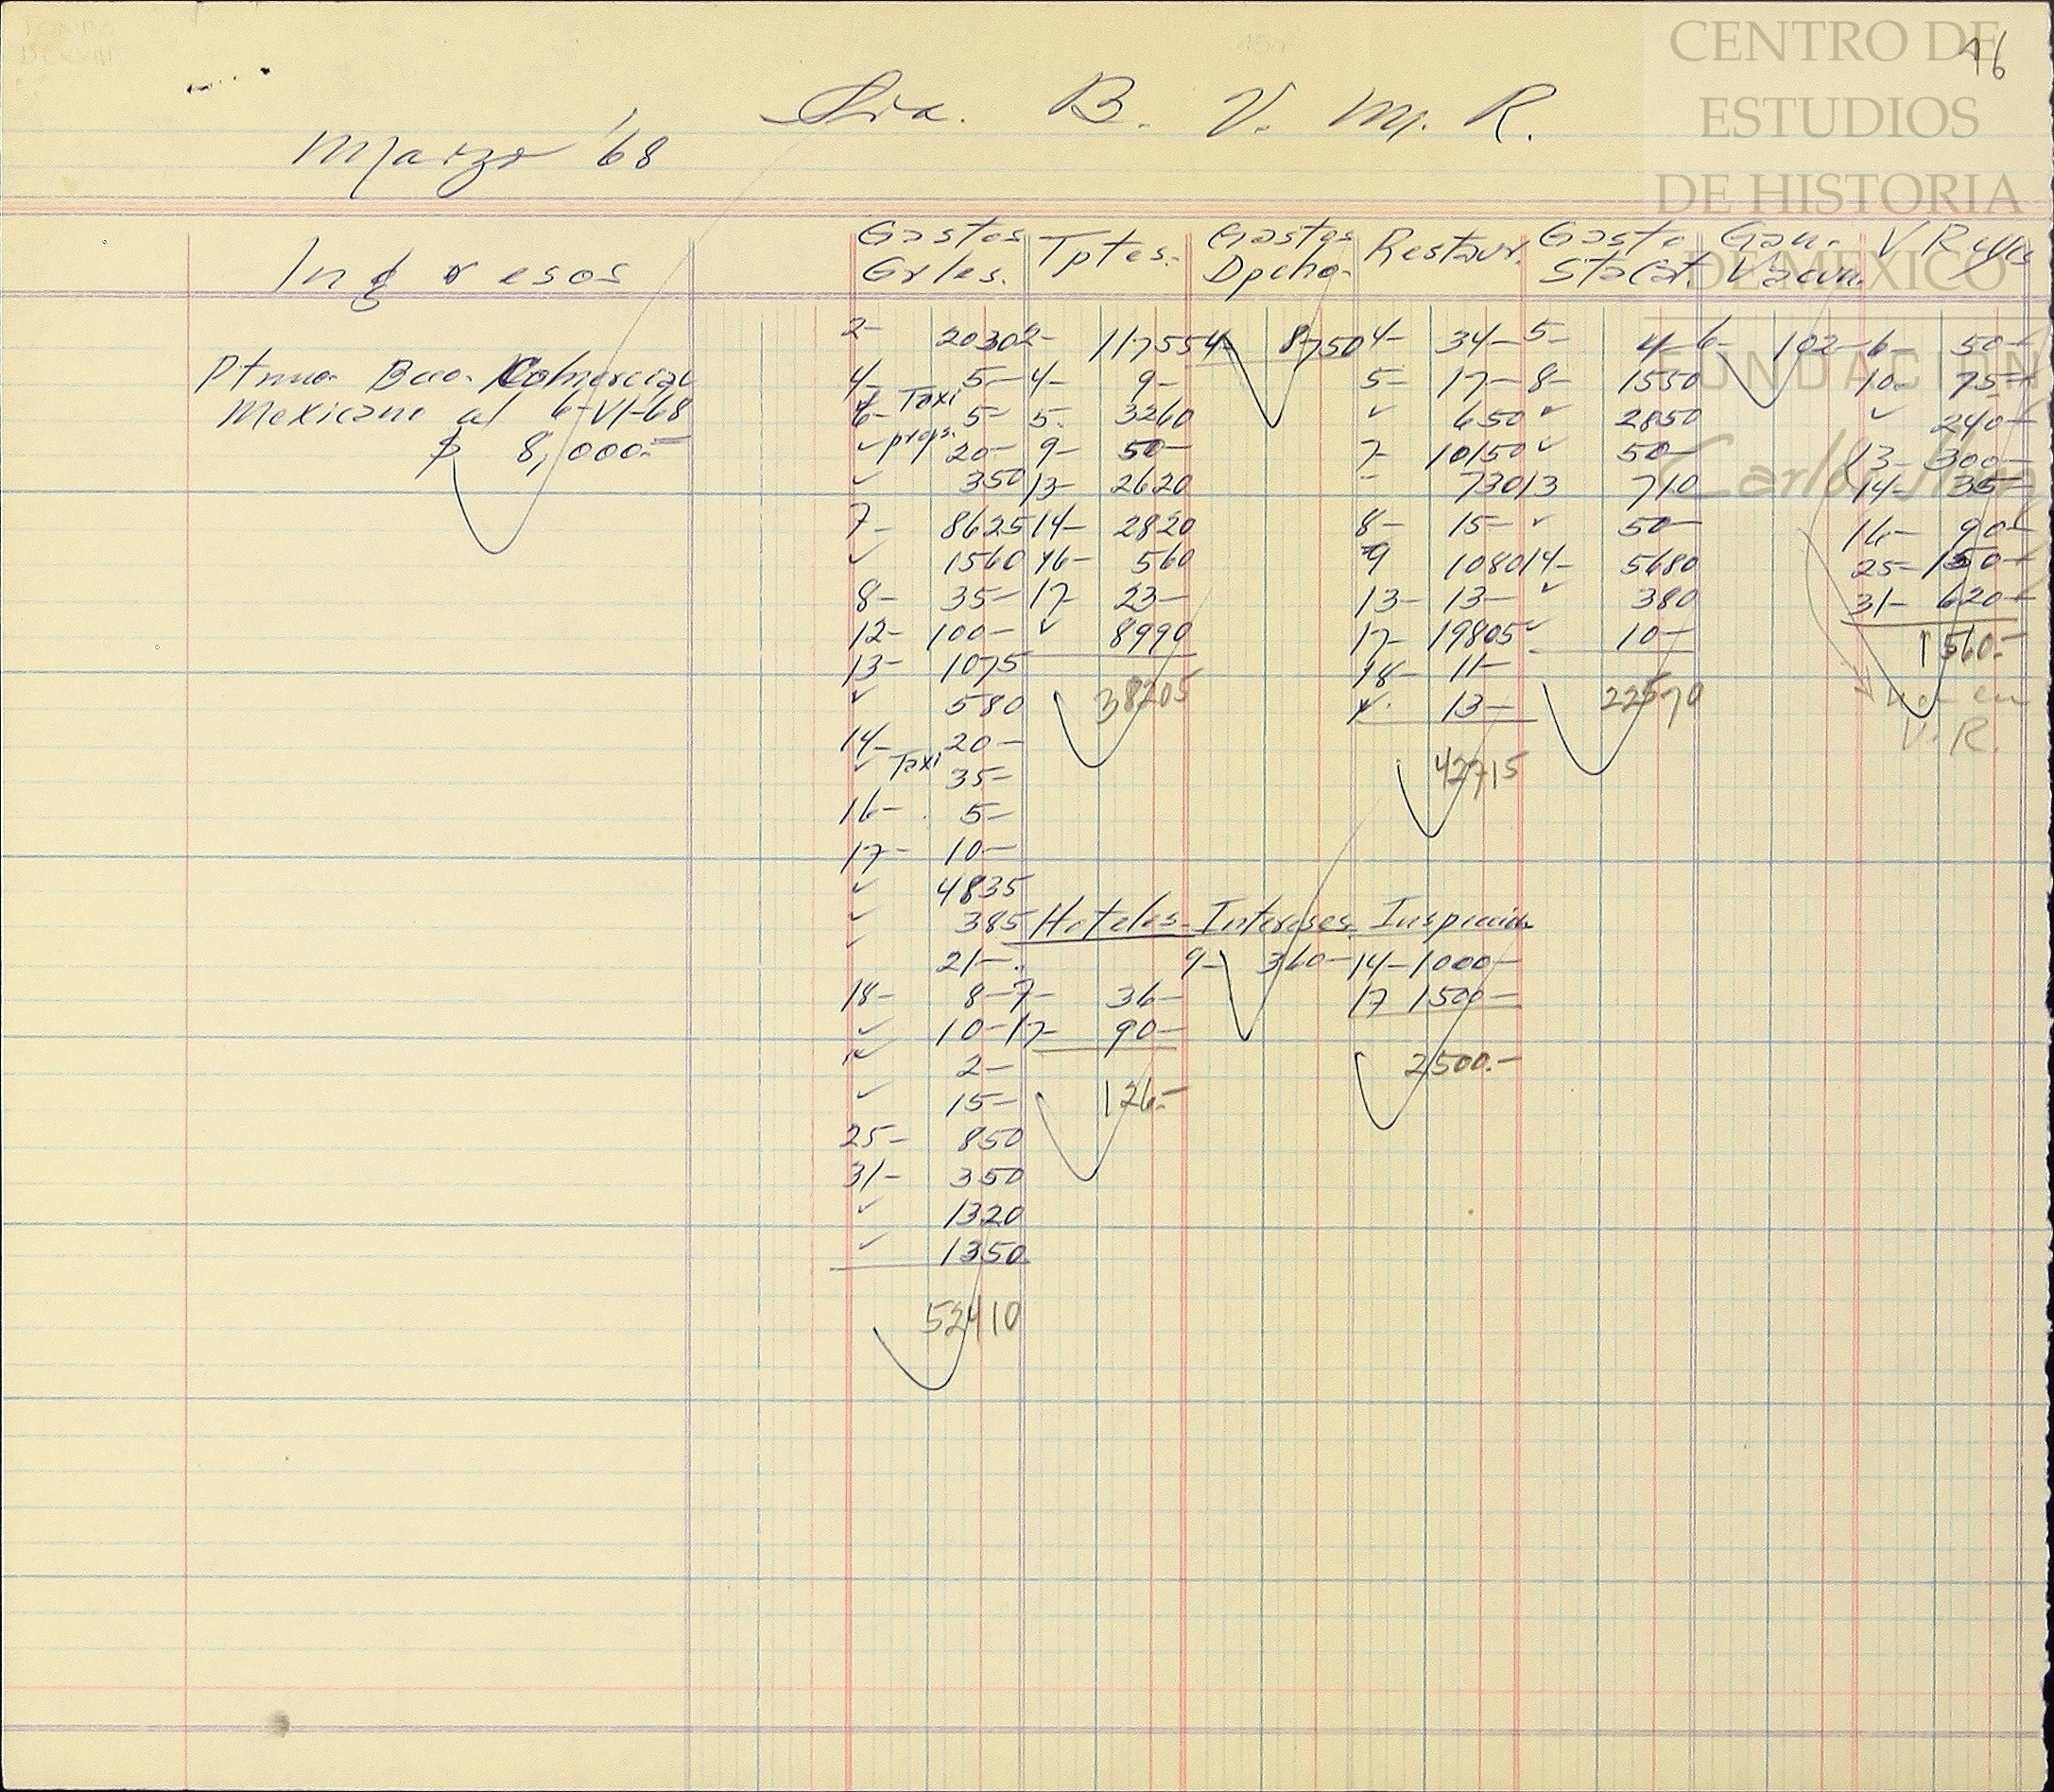 CENTRO DE
ESTUDIOS
DE HISTORIA
DE MEXICO
FUNDACION
16
B. V. M. R.
Marzo '68
Ingresos
Ptmo. Bco. Comercial
Mexicano al 6-VI-68
$ 8,000.-
Gastos Grles.
2- 2030
4- 5-
6- Taxi 5-
✓ props. 20-
✓ 350
7- 8625
✓ 1560
8- 35-
12- 100-
13- 1075
✓ 580
14- 20-
✓ Taxi 35-
16- 5-
17- 10-
✓ 4835
✓ 385
✓ 21-
18- 8-
✓ 10-
✓ 2-
✓ 15-
25- 850
31- 350
✓ 1320
✓ 1350
52410
Tptes.
2- 11755
4- 9-
5- 3260
9- 50-
13- 2620
14- 2820
16- 560
17- 23-
✓ 8990
38205
Gastos Dpcho.
4- 8750
Restaur.
4- 34-
5- 17-
✓ 650
7- 10150
- 730
8- 15-
9 1080
13- 13-
17- 19805
18- 11-
✓ 13-
42715
Gasto Stacat.
5- 4-
8- 1550
✓ 2850
✓ 50-
13 710
✓ 50-
14- 5680
✓ 380
✓ 10-
22570
Gan. Vacun.
6- 102-
V R
6- 50-
10- 75-
✓ 240-
13- 300-
14- 35-
16- 90-
25- 150-
31- 620-
1560.-
V. R.
Hoteles
7- 36-
17- 90-
126.-
Intereses
9- 360-
Inspección
14- 1000-
17 1500-
2500.-